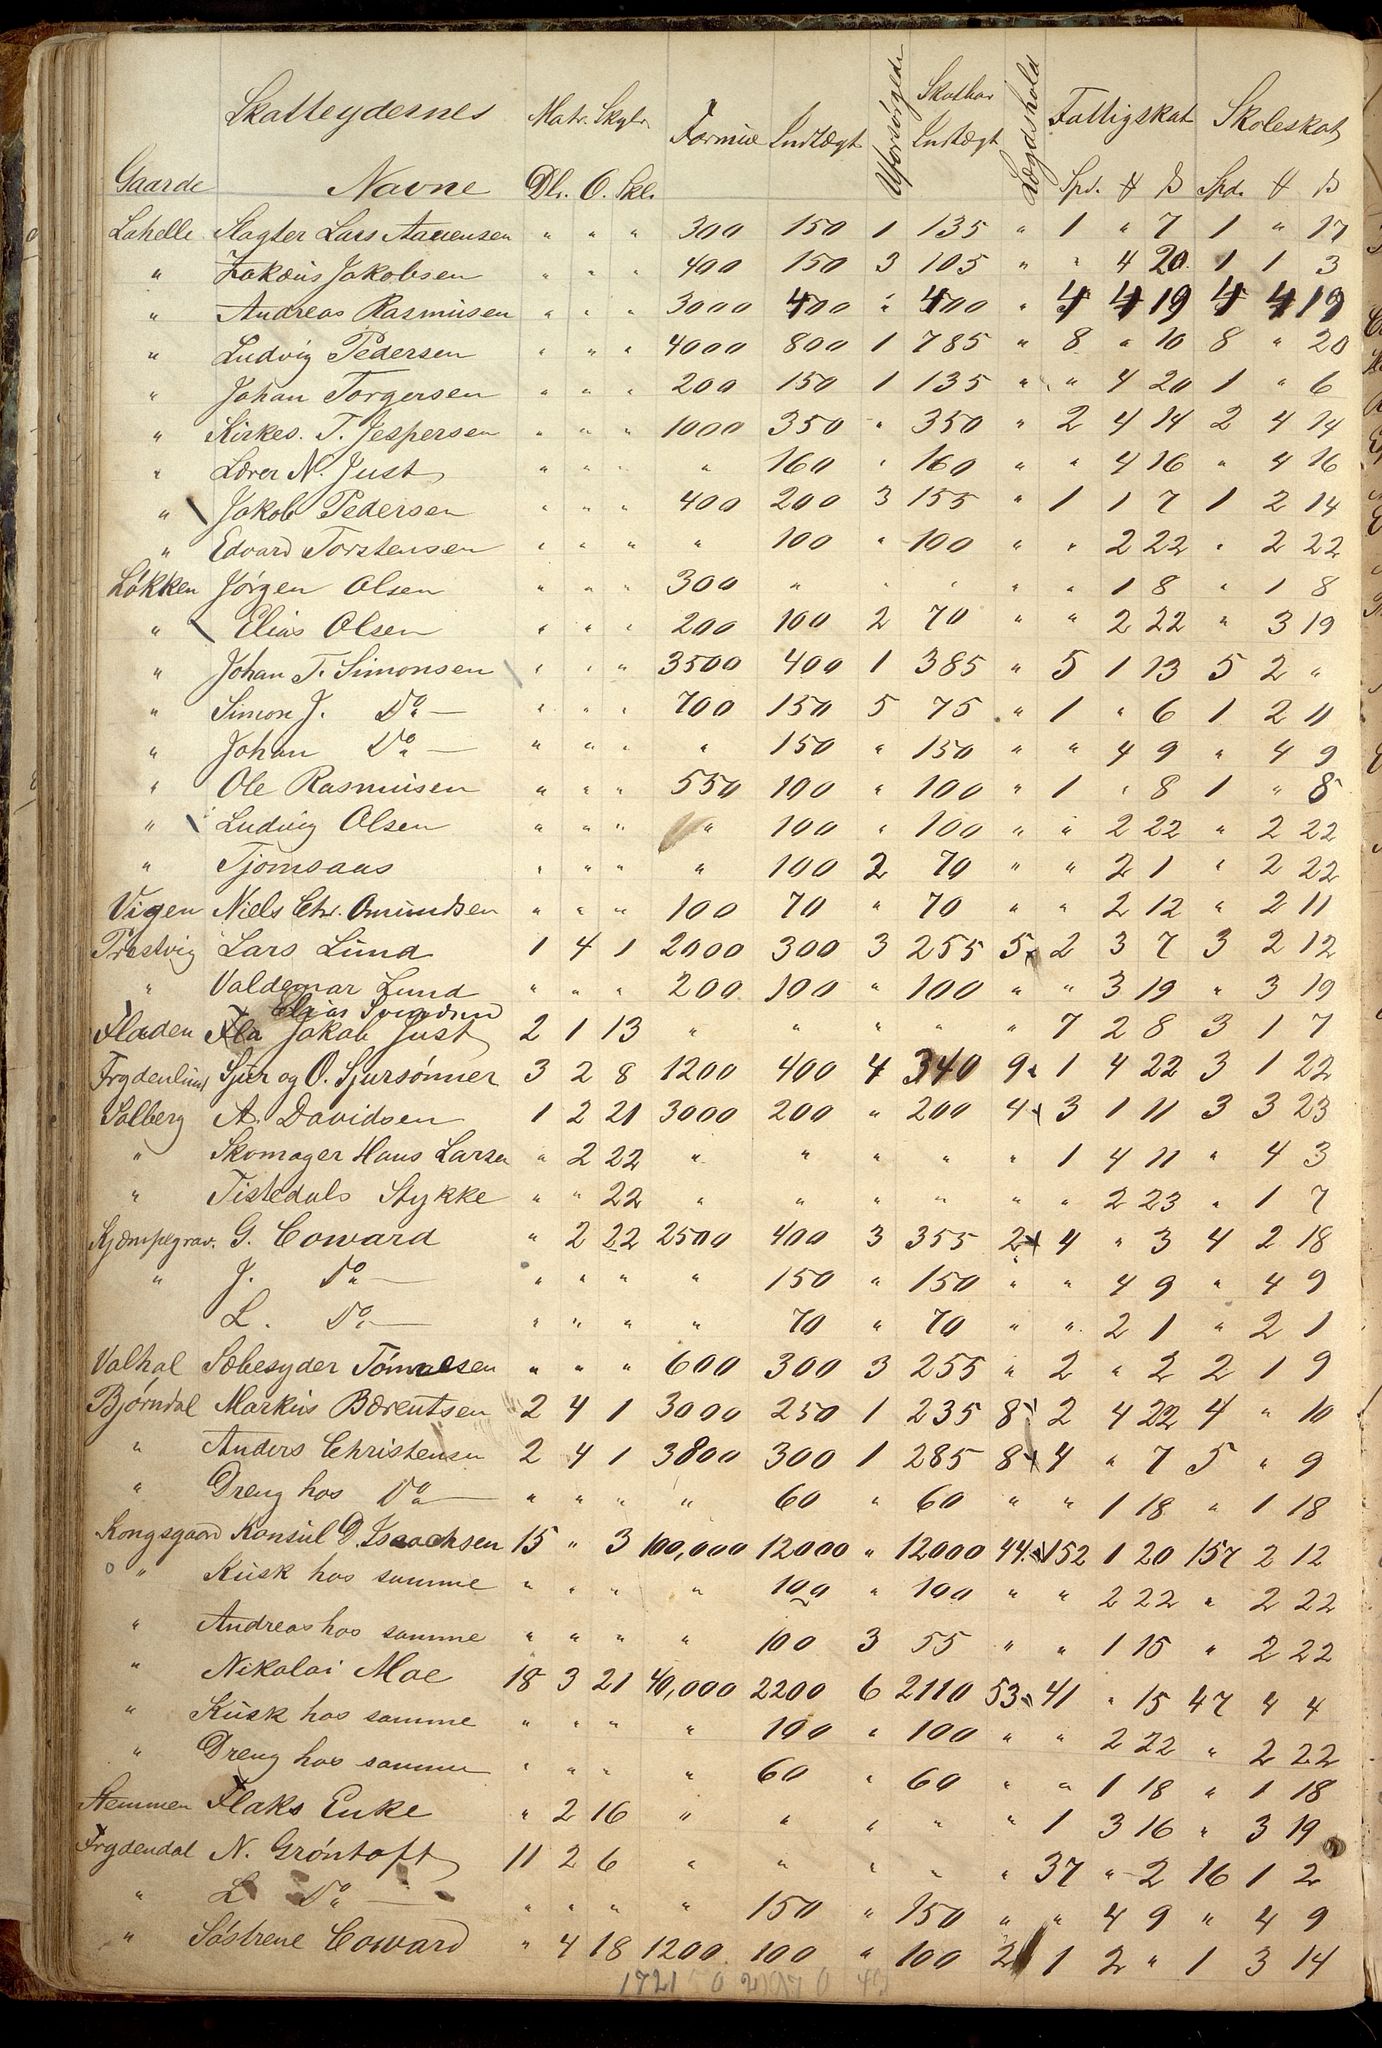 Skatteydernes Matr. Skyld. Formue Indtægt Uforsørgede Skatbar Indtægt Lægdshold Fattigskat Skoleskat
Gaarde Navne Dlr. O. Skl. Spd. ₰ ß Spd. ₰ ß
Lahelle Slagter Lars Aanensen " " " 300 150 1 135 " 1 " 7 1 " 17
" Zakæus Jakobsen " " " 400 150 3 105 " " 4 20 1 1 3
" Andreas Rasmusen " " " 3000 400 " 400 " 4 4 19 4 4 19
" Ludvig Pedersen " " " 4000 800 1 785 " 8 " 10 8 " 20
" Johan Torgersen " " " 200 150 1 135 " " 4 20 1 " 6
" Kirkes. T. Jespersen " " " 1000 350 " 350 " 2 4 14 2 4 14
" Lærer N. Just " " " " 160 " 160 " " 4 16 " 4 16
" Jakob Pedersen " " " 400 200 3 155 " 1 1 7 1 2 14
" Edvard Torstensen " " " " 100 " 100 " " 2 22 " 2 22
Løkken Jørgen Olsen " " " 300 " " " " " 1 8 " 1 8
" Elias Olsen " " " 200 100 2 70 " " 2 22 " 3 19
" Johan T. Simonsen " " " 3500 400 1 385 " 5 1 13 5 2 "
" Simon J. Do — " " " 700 150 5 75 " 1 " 6 1 2 11
" Johan Do — " " " " 150 " 150 " " 4 9 " 4 9
" Ole Rasmusen " " " 550 100 " 100 " 1 " 8 1 " 8
" Ludvig Olsen " " " " 100 " 100 " " 2 22 " 2 22
" Tjomsaas " " " " 100 2 70 " " 2 1 " 2 22
Vigen Niels Chr. Omundsen " " " 100 70 " 70 " " 2 12 " 2 11
Prestvig Lars Lund 1 4 1 2000 300 3 255 5 2 3 7 3 2 12
" Valdemar Lund " " " 200 100 " 100 " " 3 19 " 3 19
Elias Svendsen
Fladen Fla Jakob Just 2 1 13 " " " " " 7 2 8 3 1 7
Frydenlund Sjur og O. Sjursønner 3 2 8 1200 400 4 340 9 1 4 22 3 1 22
Solberg A. Davidsen 1 2 21 3000 200 " 200 4 3 1 11 3 3 23
" Skomager Hans Larsen " 2 22 " " " " " 1 4 11 " 4 3
" Tistedals Stykke " " 22 " " " " " " 2 23 " 1 7
Kjæmpegrav. G. Coward " 2 22 2500 400 3 355 2 4 " 3 4 2 18
" J. Do — " " " " 150 " 150 " " 4 9 " 4 9
L. Do — " " " " 70 " 70 " " 2 1 " 2 1
Valhal Sæbesyder Tønnesen " " " 600 300 3 255 " 2 " 2 2 1 9
Bjørndal Markus Bærentsen 2 4 1 3000 250 1 235 8 2 4 22 4 " 10
" Anders Christensen 2 4 1 3800 300 1 285 8 4 " 7 5 " 9
" Dreng hos Do — " " " " 60 " 60 " " 1 18 " 1 18
Kongsgaard Konsul D. Isaachsen 15 " 3 100,000 12000 " 12000 44 152 1 20 157 2 12
" Kusk hos samme " " " " 100 " 100 " " 2 22 " 2 22
" Andreas hos samme " " " " 100 3 55 " " 1 15 " 2 22
" Nikolai Moe 18 3 21 40,000 2200 6 2110 53 41 " 15 47 4 4
" Kusk hos samme " " " " 100 " 100 " " 2 22 " 2 22
" Dreng hos samme " " " " 60 " 60 " " 1 18 " 1 18
Stemmen Flaks Enke " 2 16 " " " " " 1 3 16 " 3 19
Frydendal N. Grøntoft 11 2 6 " " " " " 37 " 2 16 1 2
" L Do — " " " " 150 " 150 " " 4 9 " 4 9
" Søstrene Coward " 4 18 1200 100 " 100 2 1 2 " 1 3 14